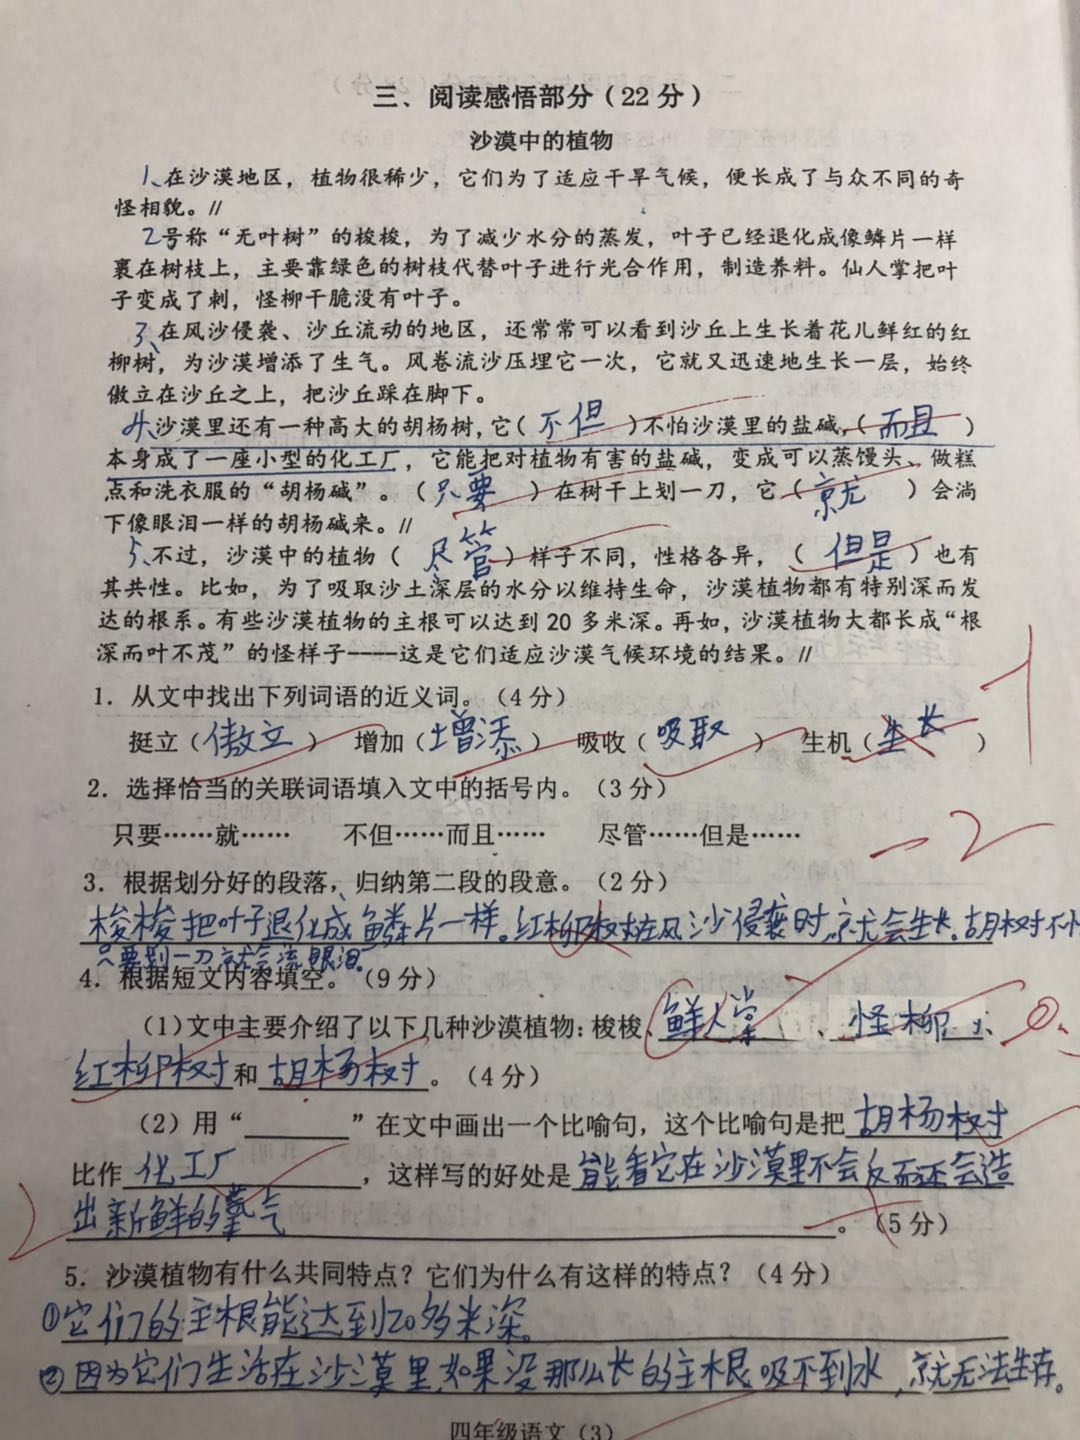 三、阅读感悟部分(22分)
沙漠中的植物
1、在沙漠地区，植物很稀少，它们为了适应干旱气候，便长成了与众不同的奇
怪相貌。//
2号称“无叶树”的梭梭，为了减少水分的蒸发，叶子已经退化成像鳞片一样
裹在树枝上，主要靠绿色的树枝代替叶子进行光合作用，制造养料。仙人掌把叶
子变成了刺，怪柳干脆没有叶子。
3、在风沙侵袭、沙丘流动的地区，还常常可以看到沙丘上生长着花儿鲜红的红
柳树，为沙漠增添了生气。风卷流沙压埋它一次，它就又迅速地生长一层，始终
傲立在沙丘之上，把沙丘踩在脚下。
4、沙漠里还有一种高大的胡杨树，它(不但)不怕沙漠里的盐碱，(而且)
本身成了一座小型的化工厂，它能把对植物有害的盐碱，变成可以蒸馒头、做糕
点和洗衣服的“胡杨碱”。(只要)在树干上划一刀，它(就)会淌
下像眼泪一样的胡杨碱来。//
5、不过，沙漠中的植物(尽管)样子不同，性格各异，(但是)也有
其共性。比如，为了吸取沙土深层的水分以维持生命，沙漠植物都有特别深而发
达的根系。有些沙漠植物的主根可以达到20多米深。再如，沙漠植物大都长成“根
深而叶不茂”的怪样子----这是它们适应沙漠气候环境的结果。//
1．从文中找出下列词语的近义词。(4分)
挺立(傲立) 增加(增添) 吸收(吸取) 生机(生长)
-1
2．选择恰当的关联词语填入文中的括号内。(3分)
只要……就…… 不但……而且…… 尽管……但是……
-2
3．根据划分好的段落，归纳第二段的段意。(2分)
梭梭把叶子退化成鳞片一样。红柳树在风沙侵袭时，就会生长。胡树不怕
只要划一刀就会流眼泪。
4．根据短文内容填空。(9分)
(1)文中主要介绍了以下几种沙漠植物：梭梭、鲜人掌、怪柳、
红柳树和胡杨树。(4分)
(2)用“______”在文中画出一个比喻句，这个比喻句是把胡杨树
比作化工厂，这样写的好处是能看它在沙漠里不会反而还会造
出新鲜的氧气。(5分)
5．沙漠植物有什么共同特点？它们为什么有这样的特点？(4分)
①它们的主根能达到20多米深。
②因为它们生活在沙漠里，如果没那么长的主根吸不到水，就无法生存。
四年级语文(3)